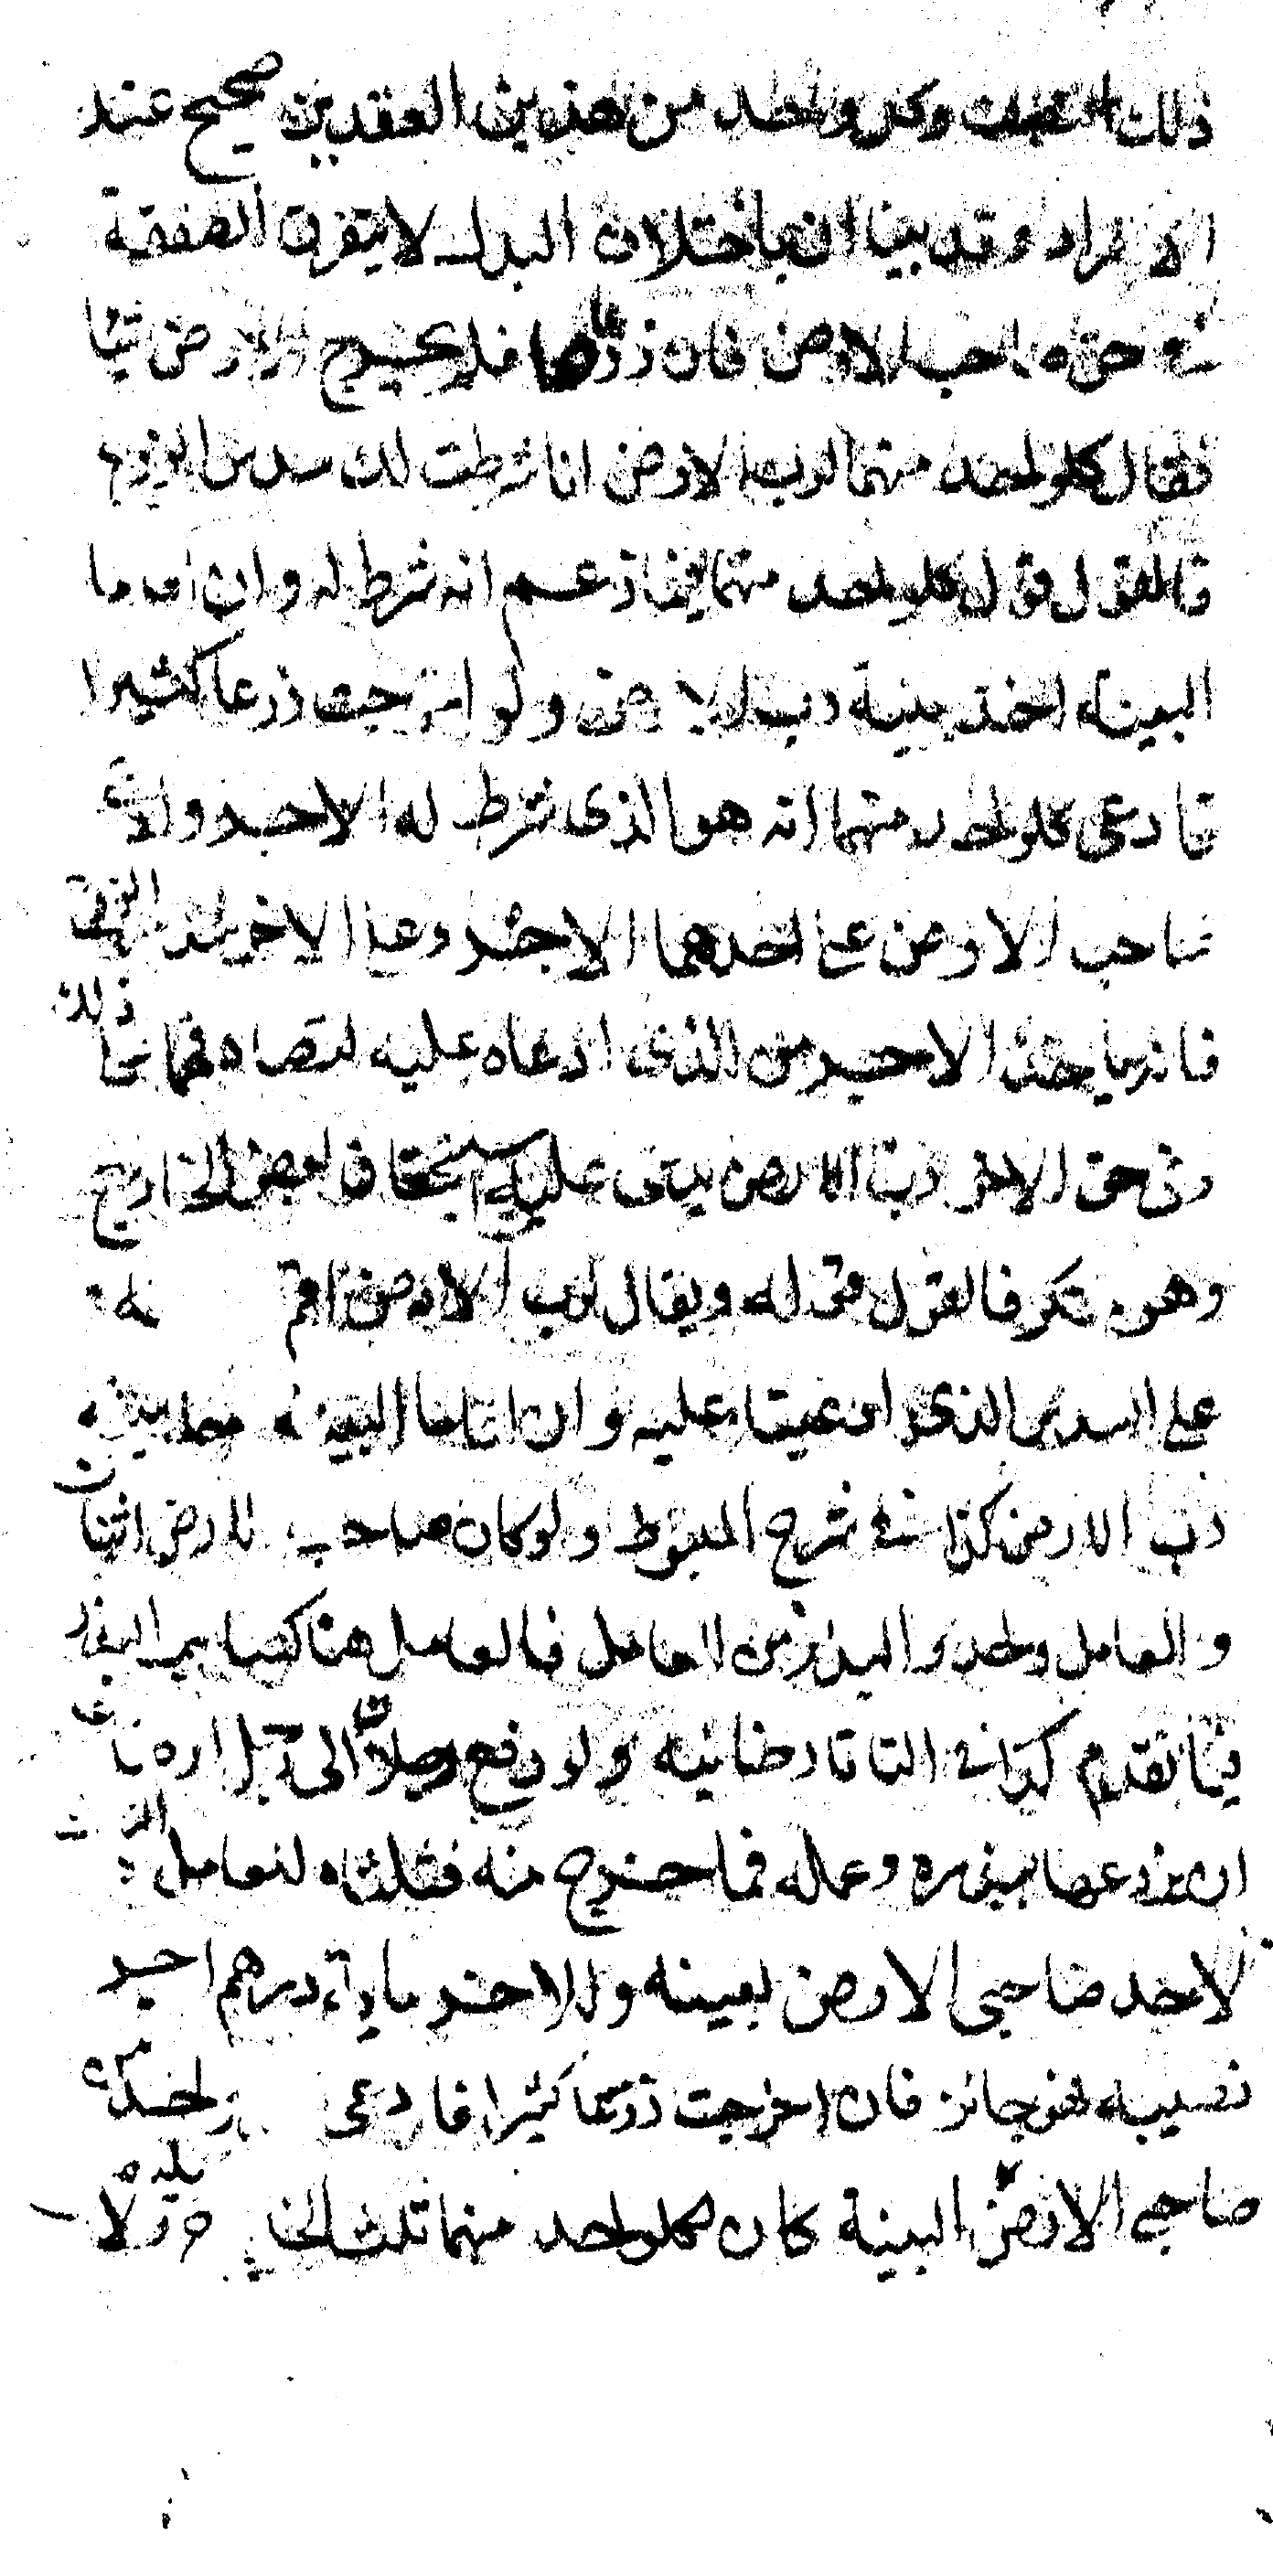 ذلك النصف وكل واحد من هذين العقدين صحيح عند
الانفراد وقد بينا ان باختلاف البدل لا يتفرق الصفقة
في حق صاحب الارض فان زرعاها فلم يخرج الارض شيئا
فقال كل واحد منهما لرب الارض انا شرطت لك سدس الزرع
فالقول قول كل واحد منهما فيما زعم انه شرط له وان اقاما
البينة اخذ ببينة رب الارض ولو اخرجت زرعا كثيرا
فادعى كل واحد منهما انه هو الذى شرط له الاجر وادعى
صاحب الارض على احدهما الاجر وعلى الاخر ثلث الزرع
فانه ياخذ الاجر من الذى ادعاه عليه لتصادقهما على ذلك
وفي حق الاخر رب الارض يدعى عليه استحقاق بعض الخارج
وهو منكر فالقول قوله ويقال لرب الارض اقم
على السدس الذى ادعيت عليه وان اقاما البينة بينة
رب الارض كذا في شرح المبسوط ولو كان صاحب الارض اثنان
والعامل واحد والبذر من العامل فالعامل هنا كصاحب البذر
فيما تقدم كذا في التاتارخانية ولو دفع رجلان الى رجل ارضا على
ان يزرعها ببذره وعمله فما خرج منه فثلثاه للعامل والثلث
لاحد صاحبى الارض بعينه وللاخر ماية درهم اجر
نصيبه فهو جائز فان اخرجت زرعا كثيرا فادعى كل واحد من
صاحبى الارض البينة كان لكل واحد منهما ثلث الخارج ولا